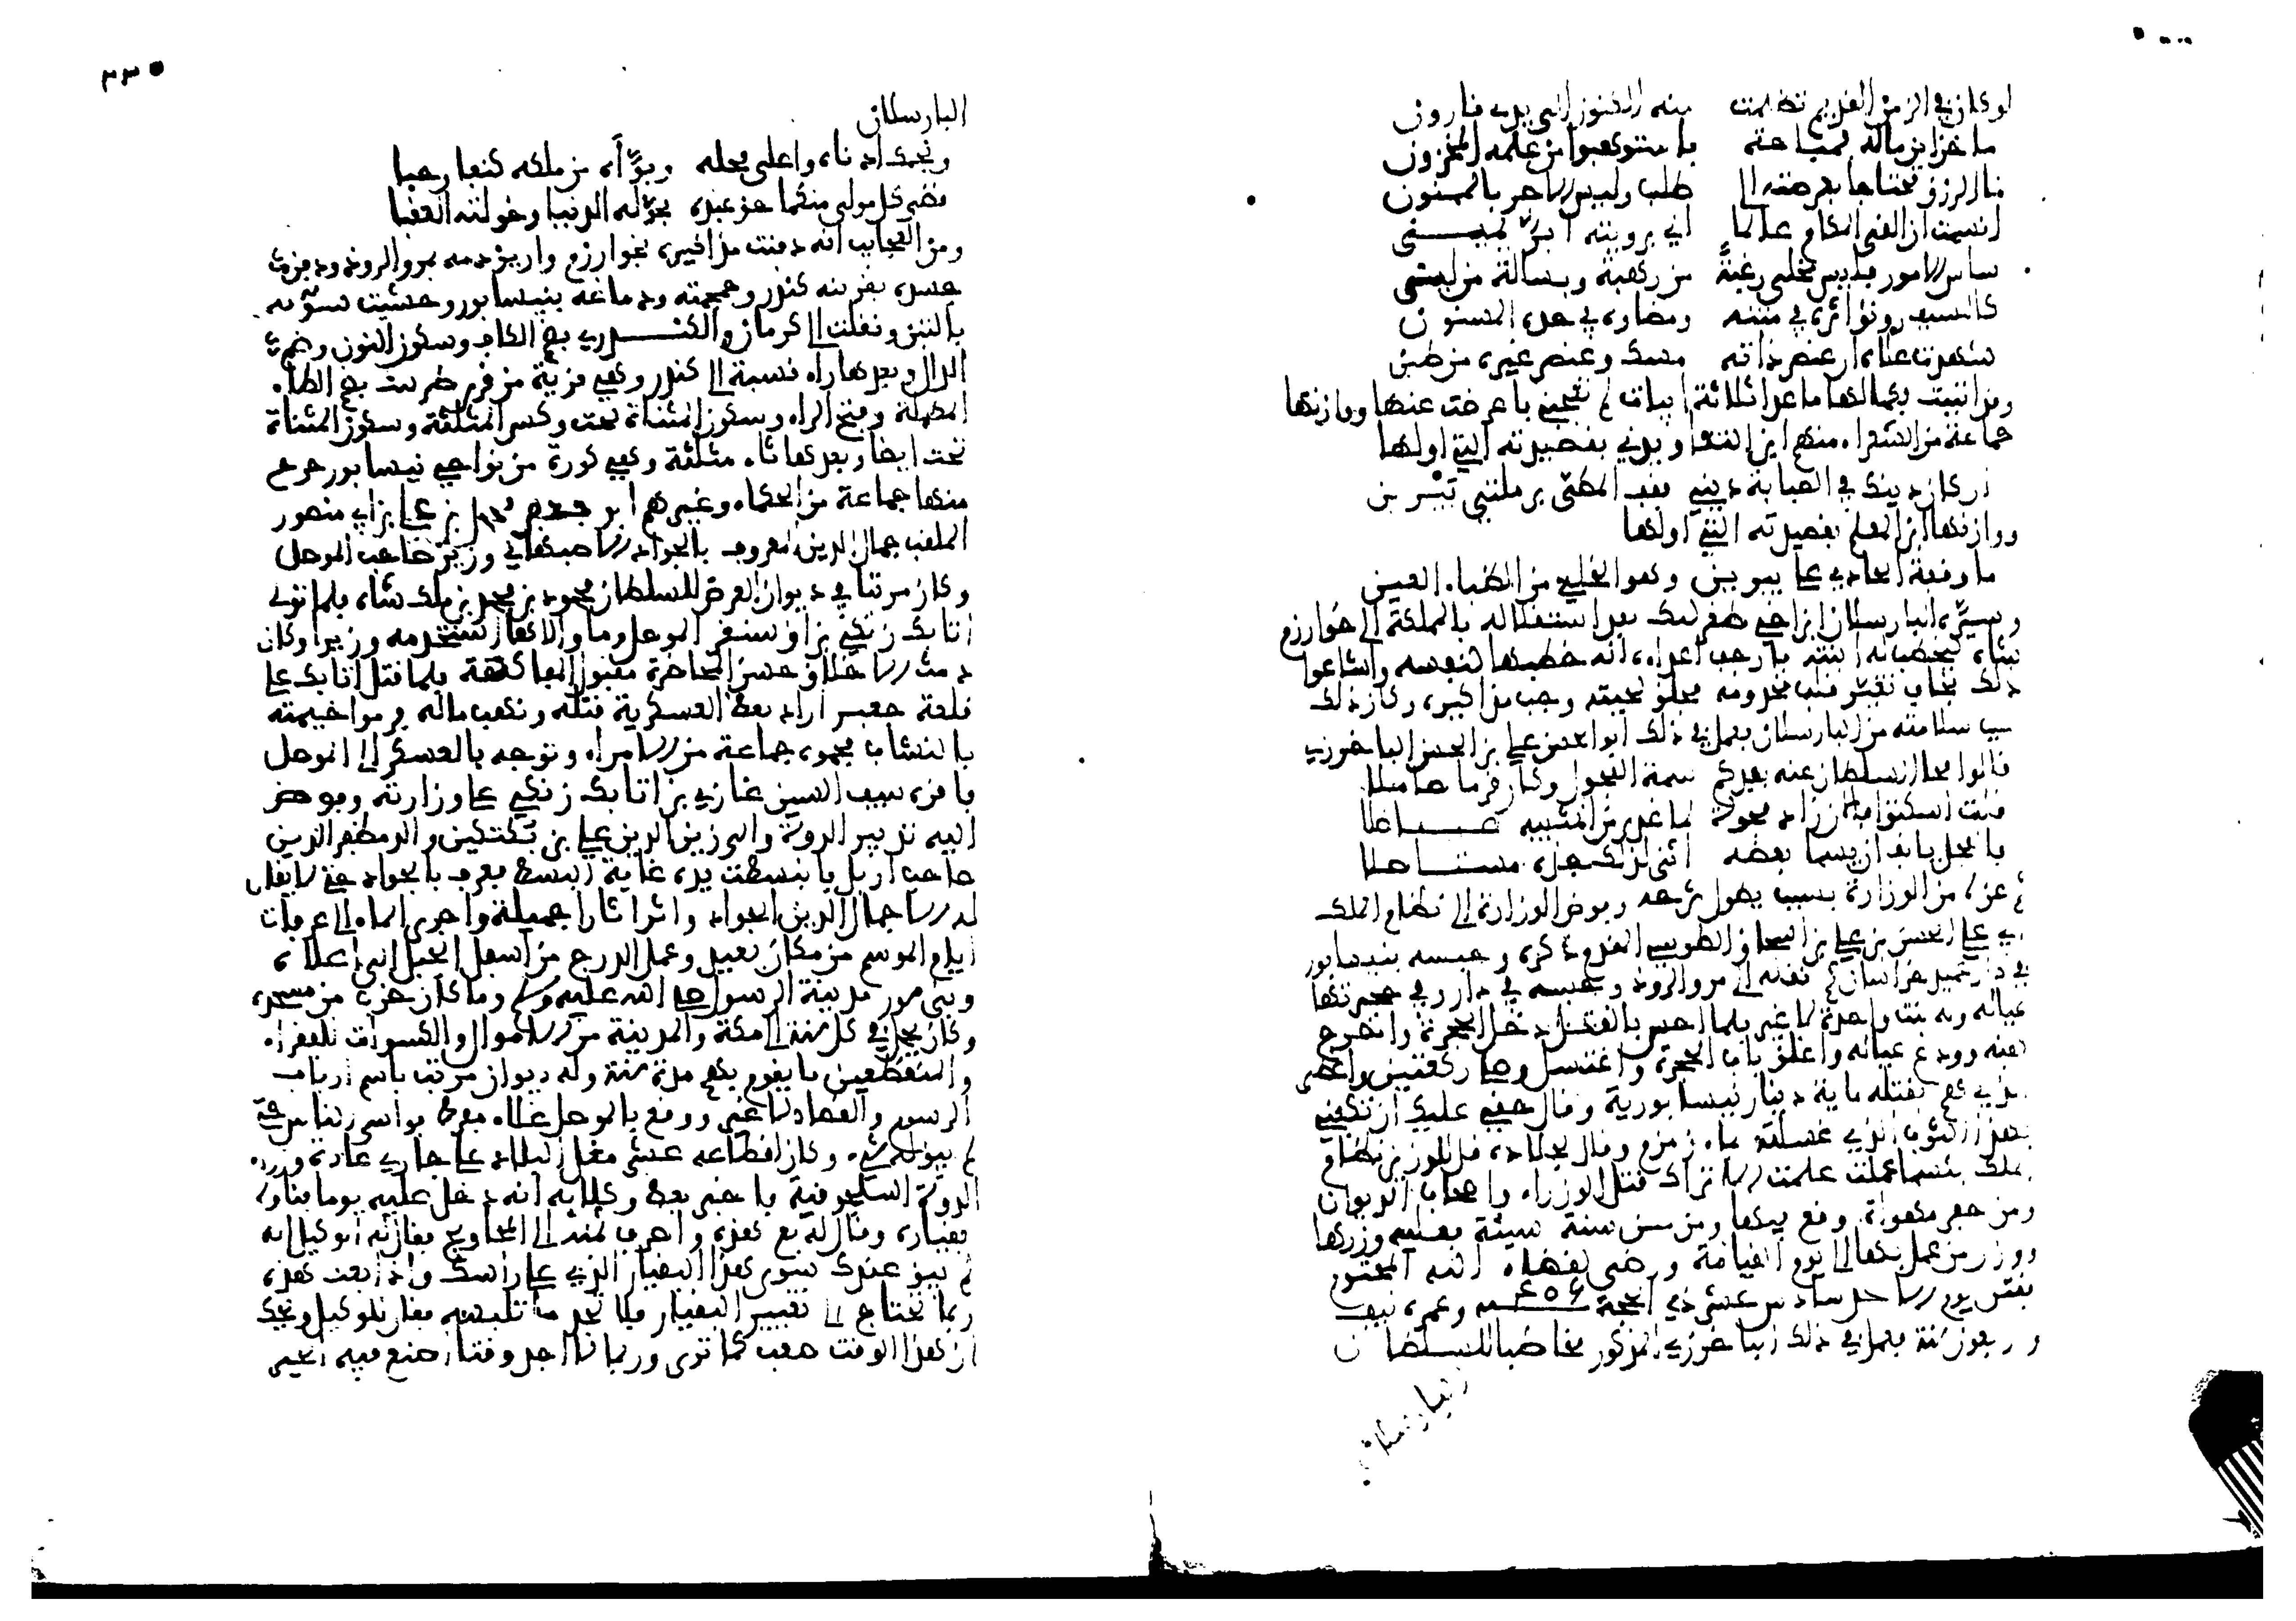 لو كان في الزمن القديم تظلمت منه الكنوز إلى يدي قارون
ما خزاين ماله بمباحة فاستوهبوا من علمه المخزون
قال الرزق محتاجا بعرضته إلى طلب وليس الاجر بالممنون
اقسمت أن الفى المكارم عالما أني برؤيته أبر يميني
ساس الامور فليس يخلي رغبة من رهبة وبسالة من لين
كالسيف رونق أثره في متنه ومضاؤه في حده المسنون
شهدت علاه أن عنصر ذاته مسك وعنصر غيره من طين
وقد اثبت بكمالها ما عدا ثلاثة ابيات لم تعجبني فاعرضت عنها ووازنها
جماعة من الشعراء منهم ابن التعاويذي بقصيدته التي اولها
ان كان دينك في الصبابة ديني فقف المطي برملتي يبرين
ووازنها ابن المعلم بقصيدته التي اولها
ما وقفة الحادي على يبرين وهو الخلي من الظباء العين
وسيره البارسلان ابن اخي طغرلبك بعد استقلاله بالمملكة الى خوارزم
شاه ليخطب له ابنته فارجف اعداؤه انه خطبها لنفسه واشاعوا
ذلك فخاف تغير قلب مخدومه فحلق لحيته وجب مذاكيره وكان ذلك
سبب سلامته من البارسلان فعمل في ذلك ابو الحسن علي بن الحسن الباخرزي
قالوا محا السلطان عنه بعدكم سمة الفحول وكان قرما صائلا
قلت اسكتوا فالان زاد فحولة لما اغتدى من انثييه عاطلا
فالفحل يانف ان يسما بعضه انثى لذلك جذه مستاصلا
ثم عزله من الوزارة بسبب يطول شرحه وفوض الوزارة الى نظام الملك
ابي علي الحسن بن علي بن اسحاق الطوسي المقدم ذكره وحبسه بنيسابور
في دار عميد خراسان ثم نقله الى مرو الروذ وحبسه في دار وفي حجرتها
عياله وله بنت واحدة لا غير فلما احس بالقتل دخل الحجرة واخرج
كفنه وودع عياله واغلق باب الحجرة واغتسل وصلى ركعتين واعطى
الذي هم بقتله ماية دينار نيسابورية وقال حقي عليك ان تكفنني
بهذا الثوب الذي غسلته بماء زمزم وقال لجلاده قل للوزير نظام
الملك بئسما عملت علمت الاتراك قتل الوزراء واصحاب الديوان
ومن حفر مهواة وقع فيها ومن سن سنة سيئة فعليه وزرها
ووزر من عمل بها الى يوم القيامة ورضي بقضاء الله المحتوم
فقتل يوم الاحد سادس عشر ذي الحجة سنة ٤٥٦ وعمره نيف
واربعون سنة فعمل في ذلك الباخرزي المذكور مخاطبا للسلطان
البارسلان
٣٣
البارسلان
وعمك ادناه واعلى محله وبوأه من ملكه كنفا رحبا
قضى كل مولى منكما حق عبده فخوله الدنيا وخولته العقبا
ومن العجايب انه دفنت مذاكيره بخوارزم واريق دمه بمرو الروذ ودفن
جسده بقرية كندر وجمجمته ودماغه بنيسابور وحشيت سوءته
بالتبن ونقلت الى كرمان والكندري بضم الكاف وسكون النون وضم
الدال وبعدها راء نسبة الى كندر وهي قرية من قرى طريثيث بضم الطاء
المهملة وفتح الراء وسكون المثناة تحت وكسر المثلثة وسكون المثناة
تحت ايضا وبعدها ثاء مثلثة وهي كورة من نواحي نيسابور خرج
منها جماعة من العلماء وغيرهم ابو جعفر محمد بن علي بن ابي منصور
الملقب جمال الدين المعروف بالجواد الاصبهاني وزير صاحب الموصل
وكان مرتبا في ديوان العرض للسلطان محمود بن محمد بن ملك شاه فلما تولى
اتابك زنكي بن اق سنقر الموصل وما والاها استخدمه وزيرا وكان
دمث الاخلاق حسن المحاضرة مقبول المفاكهة فلما قتل اتابك على
قلعة جعبر اراد بعض العسكرية قتله ونهب ماله ورموا خيمته
بالنشاب فحموه جماعة من الامراء وتوجه بالعسكر الى الموصل
فاقره سيف الدين غازي بن اتابك زنكي على وزارته وفوض
اليه تدبير الدولة والى زين الدين علي بن بكتكين والد مظفر الدين
صاحب اربل فانبسطت يده غاية البسط فعرف بالجواد حتى لا يقال
له الا جمال الدين الجواد واثر اثارا جميلة واجرى الماء الى عرفات
ايام الموسم من مكان بعيد وعمل الدرج من اسفل الجبل الى اعلاه
وبنى سور مدينة الرسول صلى الله عليه وسلم وما كان خرب من مسجده
وكان يحمل في كل سنة الى مكة والمدينة من الاموال والكسوات للفقراء
والمنقطعين ما يقوم بهم مدة سنة وله ديوان مرتب باسم ارباب
الرسوم والقصاد لا غير ووقع بالموصل غلاء مفرط فواسى الناس حتى
لم يبق له شيء وكان اقطاعه عشر مغل البلاد على جاري عادة وزراء
الدولة السلجوقية فاخبر بعض وكلايه انه دخل عليه يوما فناوله
بقياره وقال له بع هذا واصرف ثمنه الى المحاويج فقال له الوكيل انه
لم يبق عندك سوى هذا البقيار الذي على راسك واذا بعت هذا
ربما تحتاج الى تغيير البقيار فلا تجد ما تلبسه فقال للوكيل ويحك
ان هذا الوقت صعب كما ترى وربما لا اجد وقتا اصنع فيه الخير